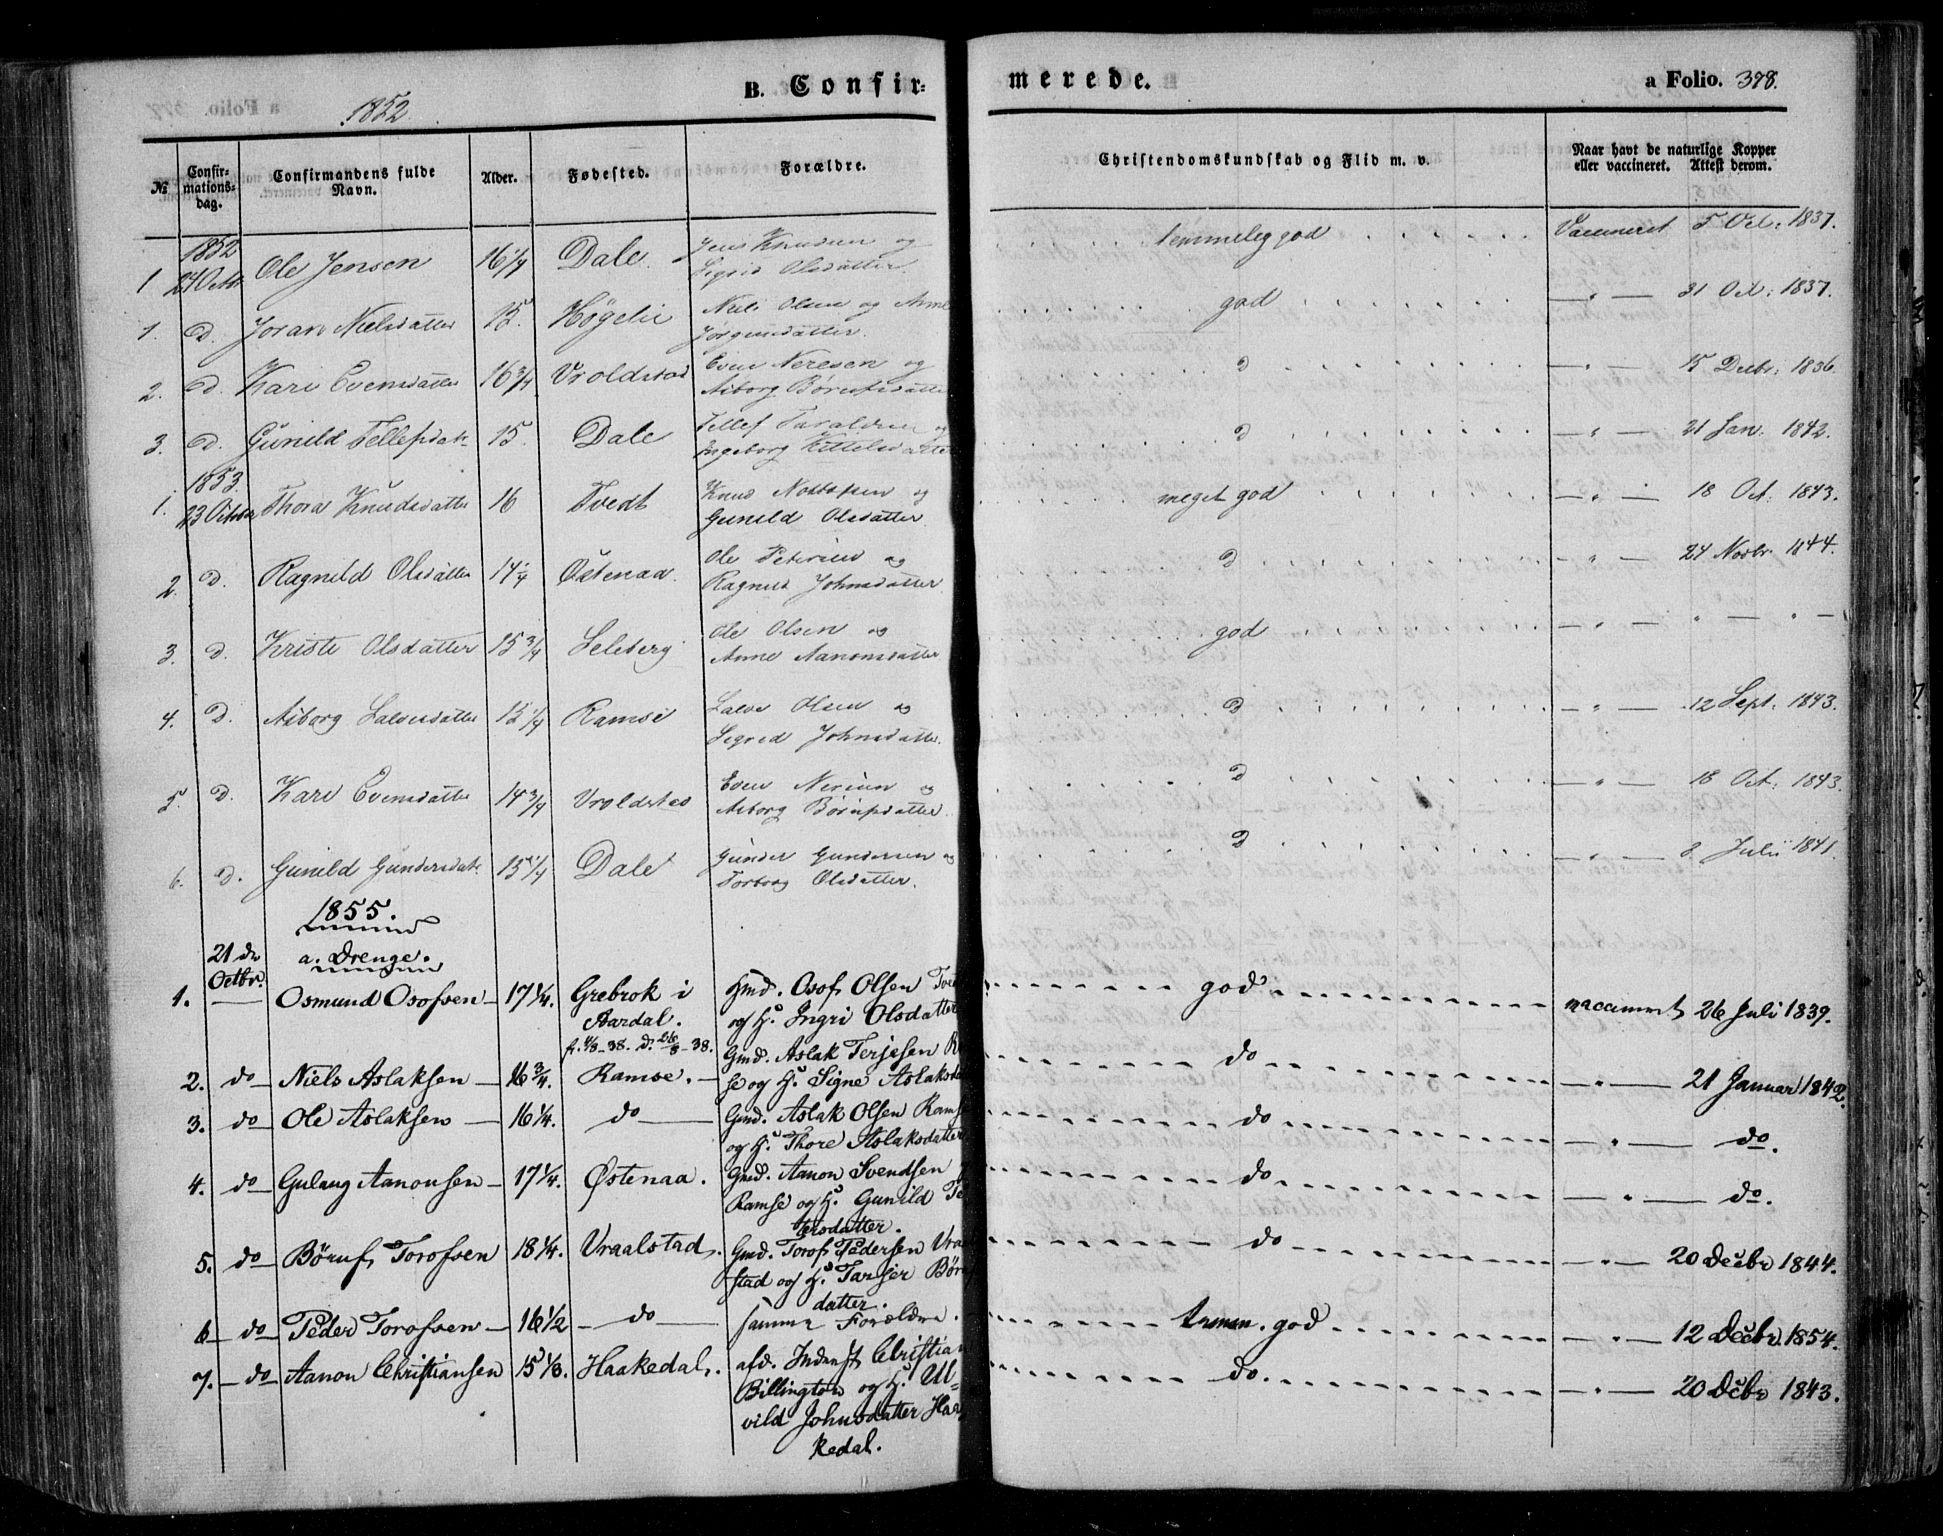 1852
B. Confir=
merede.
a Folio. 398.
№
Confir-
mations-
dag.
Confirmandens fulde
Navn.
Alder.
Fødested.
Forældre.
Christendomskundskab og Flid m. v.
Naar havt de naturlige Kopper
eller vaccineret. Attest derom.
1852
1 24 Octbr Ole Jensen 16 1/4 Dale. Jens Knudsen og temmelig god Vaccineret 5 Oct: 1837.
Sigrid Olsdatter.
1. D. Joran Nielsdatter 15. Høgelie Niels Olsen og Anne god — " — 31 Oct: 1837.
Jørgensdatter.
2. D. Kari Evensdatter 16 3/4 Vroldstad Even Neresen og D — " — 15 Decbr: 1836.
Asborg Børufsdatter
3. D. Gunild Tellefsdat 15. Dale Tellef Taraldsen og D — " — 21 Jan. 1842.
Ingeborg Kittelsdatter
1853.
1. 23 October Thora Knudsdatter 16 Tvedt Knud og meget god — " — 18 Oct: 1843.
Gunild Olsdatter.
2. D. Ragnild Olsdatter 14 1/4 Östenaa. Ole Petersen og D — " — 24 Novbr 1844.
Ragnild Johnsdatter.
3. D. Kriste Olsdatter 15 3/4 Leleberg Ole Olsen og god — " — " — " —
Anne Aanonsdatter
4. D. Asborg Salvesdatter 15 1/4 Ramse Salve Olsen og D — " — 12 Sept: 1843.
Sigred Johnsdatter.
5. D. Kari Evensdatter 14 3/4 Vroldstad Even Nersen og D — " — 18 Oct: 1843.
Asborg Børufsdatter.
6. D. Gunild Gundersdat 15 1/4 Dale Gunder Gundersen og D — " — 8 Julii 1841.
Torborg Olsdatter.
1855.
21 de
Octbr.
a. Drenge.
1. — Osmund Osofsen — 17 1/4. Grebrok i Gmd. Osof Olsen god vaccineret 26 Juli 1839.
Aardal. og H. Ingri Olsdatter
f. 1/8–38. d. 26/8–38.
2. do — Niels Aslaksen — 16 3/4. Ramse. — Gmd. Aslak Terjesen do — " — 21 Januar 1842.
se og H. Signe
3. do — Ole Aslaksen — 16 1/4. do — Gmd. Aslak Olsen Ramse do — " — do.
og H. Thore Aslaksdatter
4. do — Gulaug Aanonsen — 17 1/4. Østenaa. Gmd. Aanon Svendsen do — " — do.
Ramse og H. Gunild
tersdatter.
5. do — Børuf Torofsen 18 1/4. Vraalstad. Gmd. Torof Pedersen Vraal do — " — 20 Decbr 1844.
stad og H. Tarjer
datter.
6 — do — Peder Torofsen — 16 1/2 — do — samme Forældre. temm. god — " — 12 Decbr 1854.
7. — do — Aanon Christiansen 15 1/8. Haakedal. afd. Inderst Christian do. — " — 20 Decbr 1843.
Billington og H. Ul=
vild Johnsdatter Haa
kedal.